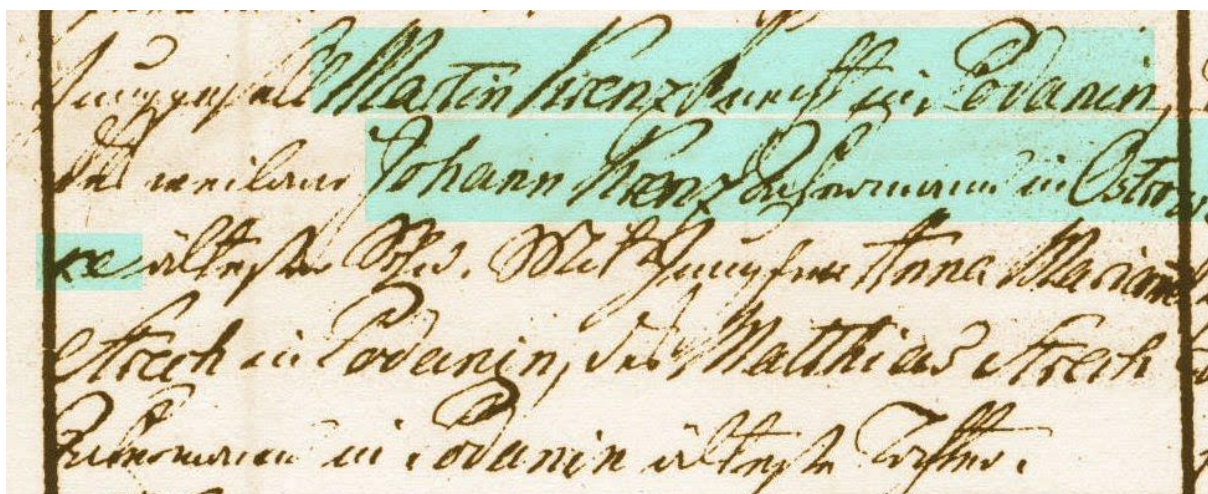 Junggesell Martin Krenz Knecht in Podanin,
des weiland Johann Krenz Ackermann in Ostrow
ke ältester Sohn. Mit Jungfrau Anna Mariane
Strech in Podanin, des Matthias Strech
Ackermann in Podanin älteste Tochter.